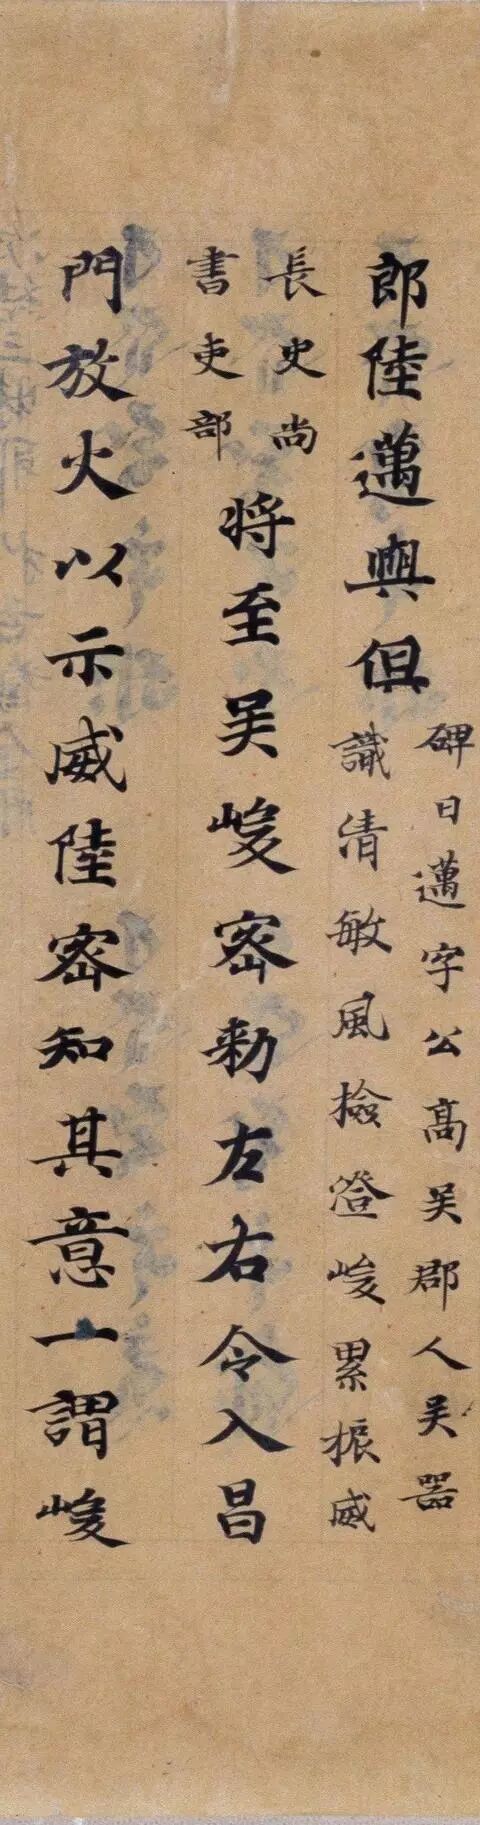 郎陸邁興俱
碑曰邁字公高吳郡人吳器
識清敏風檢澄峻累振威
長史尚
書吏部
將至吳峻密勑左右令入昌
門放火以示威陸密知其意一謂峻